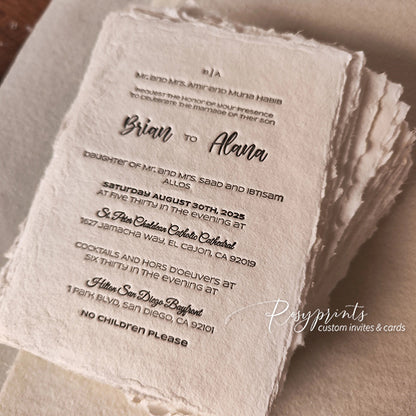 B|A
Mr. and Mrs. Amir and Muna Habib
Request The Honor of Your Presence
To Celebrate The Marriage of Their Son
Brian TO Alana
Daughter of Mr. and Mrs. Saad and Ibtisam
Allos
Saturday August 30th, 2025
At Five Thirty in the Evening at
St. Peter Chaldean Catholic Cathedral
1627 Jamacha Way, El Cajon, CA 92019
Cocktails and Hors D'oeuvers at
Six Thirty in the Evening at
Hilton San Diego Bayfront
1 Park Blvd, San Diego, CA 92101
No Children Please
Posyprints
custom invites & cards